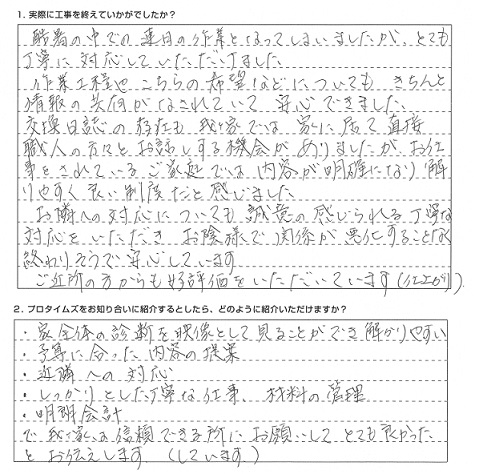 1. 実際に工事を終えていかがでしたか？
酷暑の中での連日の作業となってしまいましたが、とても
丁寧に対応していただけました。
作業工程やこちらの希望などについても、きちんと
情報の共有がなされていて、安心できました。
交換日誌の存在も我が家では、家に居て直接
職人の方々とお話しする機会がありましたが、お仕
事をされているご家庭では、内容が明確になり解
りやすく良い制度だと感じました。
お隣への対応についても、誠意の感じられる丁寧な
対応をいただき、お陰様で関係が悪化することなく
終わりそうで安心しています。
ご近所の方からも好評価をいただいています(仕上がり)
2. プロタイムズをお知り合いに紹介するとしたら、どのように紹介いただけますか？
・家全体の診断を映像として見ることができ解かりやすい
・予算に合った内容の提案
・近隣への対応
・しっかりとした丁寧な仕事、材料の管理
・明朗会計
で我が家は信頼できる所にお願いして、とても良かった
とお伝えします (しています)